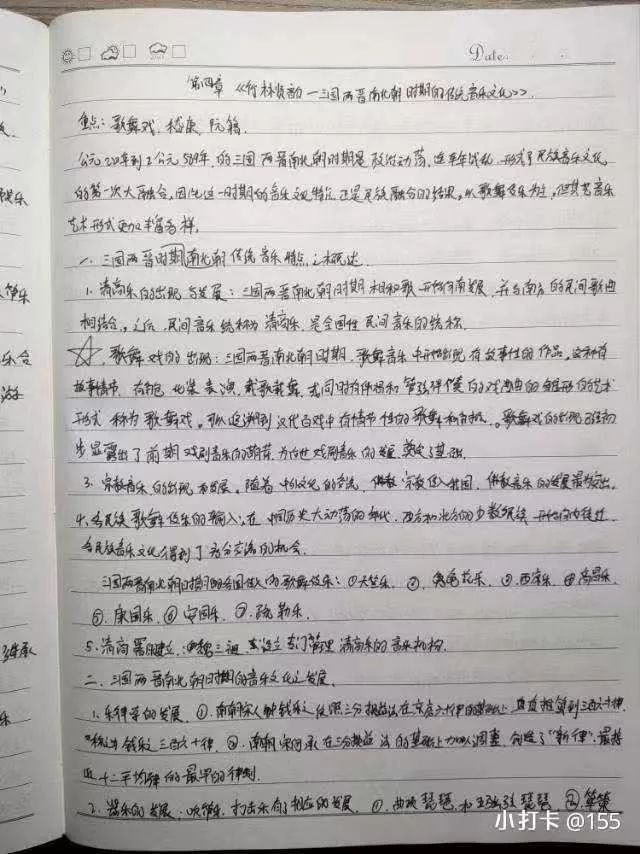 Date:
第四章《竹林装韵—三国两晋南北朝时期的传统音乐文化》
重点:歌舞戏、嵇康、阮籍
公元220年到公元589年,的三国两晋南北朝时期是政治动荡,连年战乱,形成了民族音乐文化
的第一次大融合,因此这一时期的音乐文化特征正是民族融合的结果。以歌舞伎乐为主,但其艺音乐
艺术形式更加丰富多样。
一、三国两晋时期南北朝传统音乐特点之概述
1.清商乐的出现与发展:三国两晋南北朝时期相和歌开始向南发展,并与南方的民间歌曲
相结合。之后,民间音乐统称为清商乐,是全国性民间音乐的统称.
☆.歌舞戏的出现:三国两晋南北朝时期,歌舞音乐中开始出现有故事性的作品。这种有
故事情节、有角色、化装表演,载歌载舞,或同时有伴唱和管弦伴奏的戏曲的雏形的艺术
形式称为歌舞戏。可以追溯到汉代百戏中有情节性的歌舞和。歌舞戏的出现
步显露出了前期戏剧音乐的萌芽,为后世戏剧音乐的发展奠定了基础.
3.宗教音乐的出现和发展。随着中外文化的交流,佛教宗教传入我国,佛教音乐的发展最为突出.
4.各民族歌舞伎乐的输入:在中国历史大动荡的年代,西方和北方的少数民族开始向内迁,
各民族音乐文化得到了充分交流的机会.
三国两晋南北朝时期的各国传入的歌舞伎乐:①天竺乐.②.龟兹乐.③.西凉乐.④高昌乐
⑤.康国乐.⑥安国乐.⑦.疏勒乐.
5.清商署建立:曹魏三祖设立专门管理清商乐的音乐机构.
二、三国两晋南北朝时期的音乐文化之发展.
1.乐律学的发展.①.南朝宋人钱乐之依照三分损益法在京房六十律的基础上一直推算到三百六十律.
称为钱乐之三百六十律.②.南朝宋何承天在三分损益法的基础上加以调整,创造了“新律”,最接
近十二平均律的最早的律制.
2.器乐的发展:吹管乐、打击乐有了相应的发展.①.曲项琵琶和五弦琵琶②筚篥
小打卡 @155